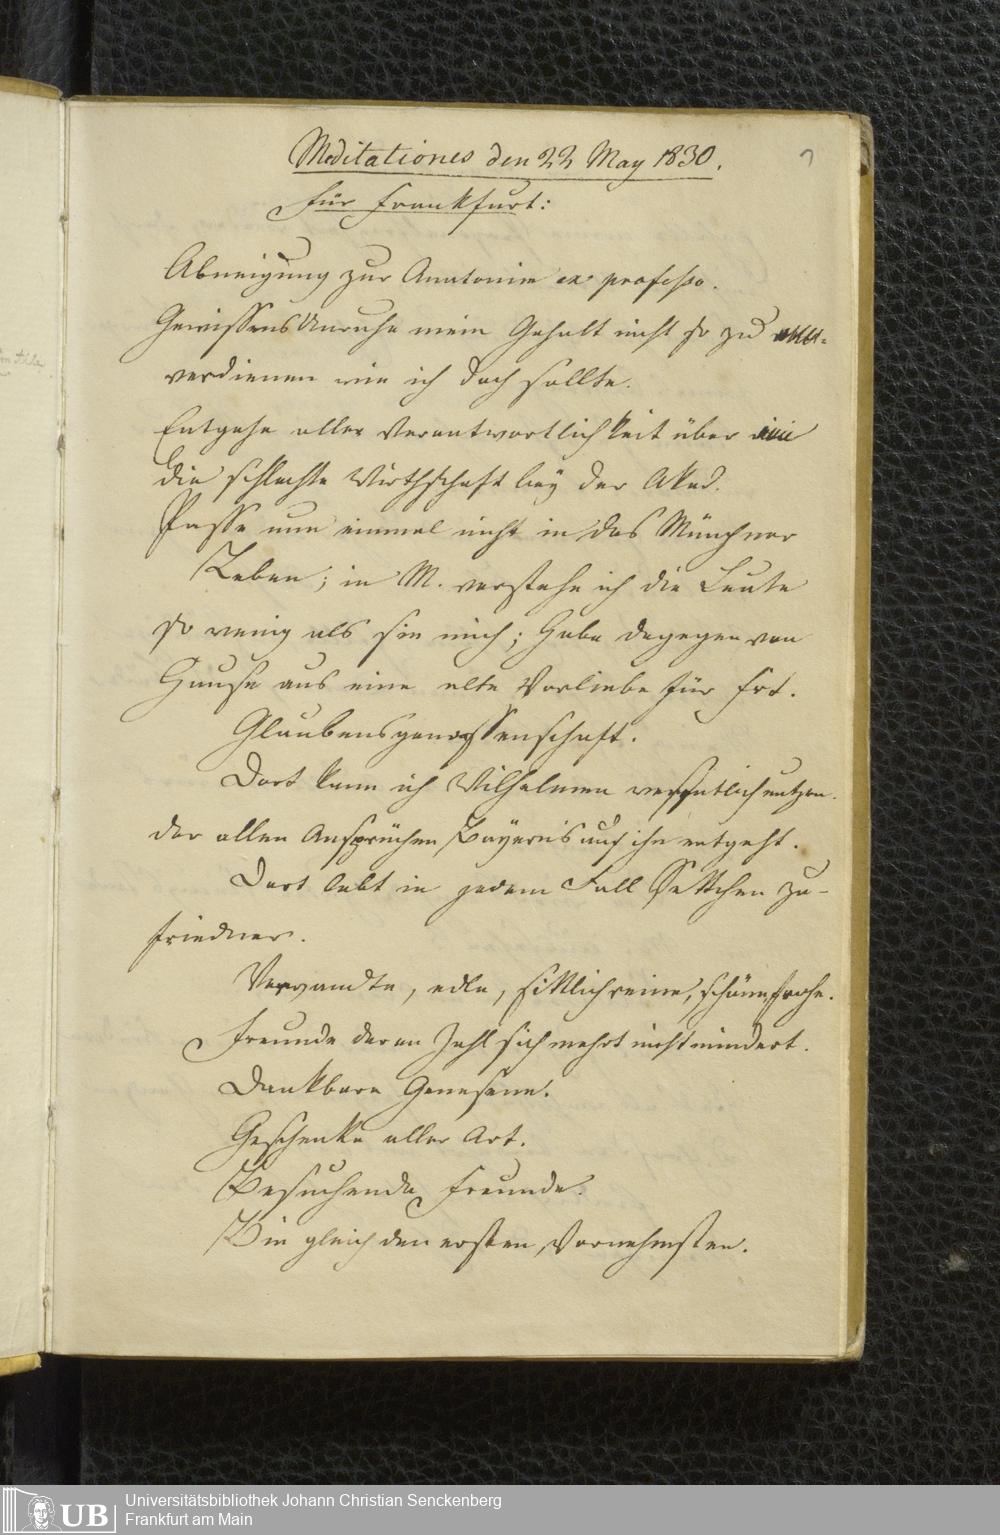 Meditationes den 22 May 1830.
für Frankfurt:
Abneigung zur Anatomie ex professo.
GewissensUnruhe mein Gehalt nicht so zu
verdienen wie ich doch sollte.
Entgehe aller Verantwortlichkeit über
die schlechte Wirthschaft bey der Akad.
Passe nun einmal nicht in das Münchner
Leben; in M. verstehe ich die Leute
so wenig als sie mich; Habe dagegen von
Hause aus eine alte Vorliebe für Frt.
Glaubensgenossenschaft.
Dort kann ich Wilhelmen wesentlich nutzen.
der allen Ansprüchen Bayerns auf ihn entgeht.
Dort lebt in jedem Fall Settchen zu-
friedner.
Verwandte, edle, sittlichreine, schöne, frohe.
Freunde deren Zahl sich mehrt nicht mindert.
Dankbare Genesene.
Geschenke aller Art.
Besuchende Freunde.
Bin gleich den ersten, Vornehmsten.
UB
Universitätsbibliothek Johann Christian Senckenberg
Frankfurt am Main